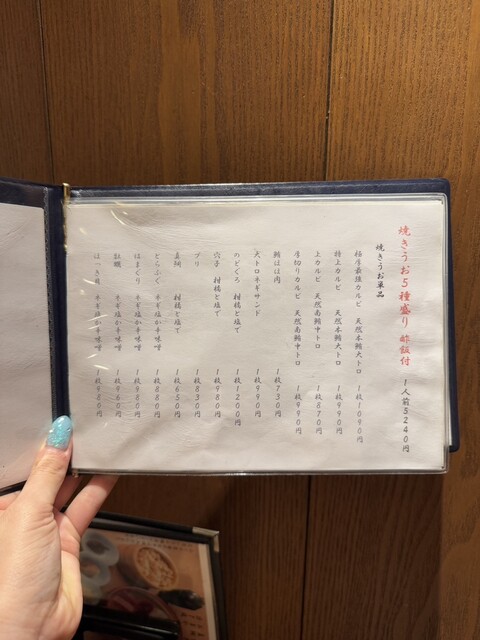 焼きうお5種盛り 酢飯付 1人前5240円
焼きうお単品
極厚最強カルビ 天然本鮪大トロ 1枚1090円
特上カルビ 天然本鮪大トロ 1枚990円
上カルビ 天然南鮪中トロ 1枚870円
厚切りカルビ 天然南鮪中トロ 1枚990円
鮪ほほ肉 1枚730円
大トロネギサンド 1枚990円
のどぐろ 柑橘と塩で 1枚1200円
穴子 柑橘と塩で 1枚980円
ブリ 1枚830円
真鯛 柑橘と塩で 1枚650円
とらふぐ ネギ塩か辛味噌 1枚880円
はまぐり ネギ塩か辛味噌 1枚980円
ネギ塩か辛味噌 1枚960円
ほっき貝 ネギ塩か辛味噌 1枚980円